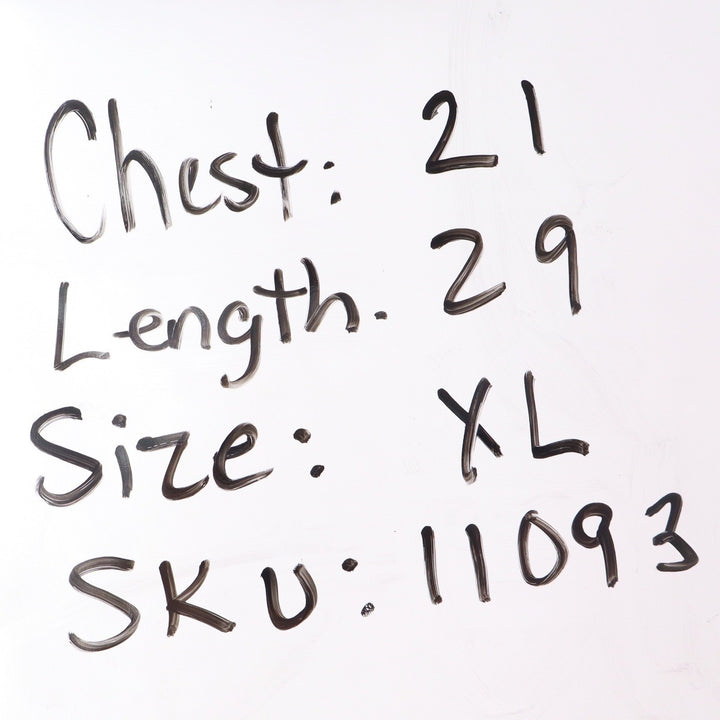 Chest: 21
Length. 29
Size: XL
SKU: 11093